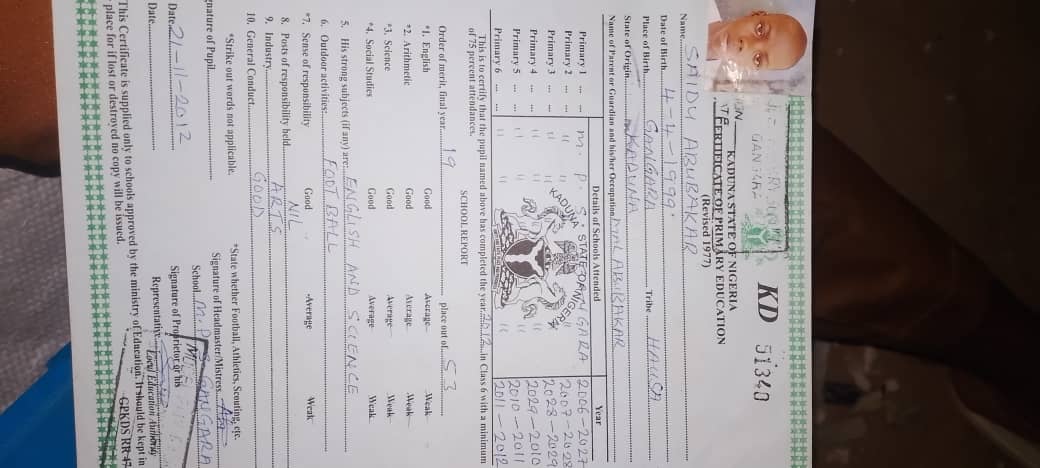 KD 51340
KADUNA STATE OF NIGERIA
CERTIFICATE OF PRIMARY EDUCATION
(Revised 1977)
Name SAIDU ABUBAKAR
Date of Birth 4-4-1999.
Place of Birth GANGARA Tribe HAUSA
State of Origin KADUNA
Name of Parent or Guardian and his/her Occupation ABUBAKAR
Details of Schools Attended Year
Primary 1 ... ... M. P. S. GANGARA 2006-2027
Primary 2 ... ... " " " 2007-2028
Primary 3 ... ... " " " 2028-2029
Primary 4 ... ... " " " 2029-2010
Primary 5 ... ... " " " 2010-2011
Primary 6 ... ... " " " 2011-2012
KADUNA STATE OF NIGERIA
This is to certify that the pupil named above has completed the year 2012 in Class 6 with a minimum
of 75 percent attendances.
SCHOOL REPORT
Order of merit, final year 19 place out of 53
*1. English Good Average Weak
*2. Arithmetic Good Average Weak
*3. Science Good Average Weak
*4. Social Studies Good Average Weak
5. His strong subjects (if any) are: ENGLISH AND SCIENCE
6. Outdoor activities: FOOT BALL
*7. Sense of responsibility Good Average Weak
8. Posts of responsibility held NIL
9. Industry ARTS
10. General Conduct GOOD
*Strike out words not applicable. *State whether Football, Athletics, Scouting, etc.
Signature of Pupil Signature of Headmaster/Mistress
School M. P. S. GANGARA
Date 21-11-2012 Signature of Proprietor or his
Date Representative Local Education Authority
This Certificate is supplied only to schools approved by the ministry of Education. It should be kept in
place for if lost or destroyed no copy will be issued.
GPKDS RR